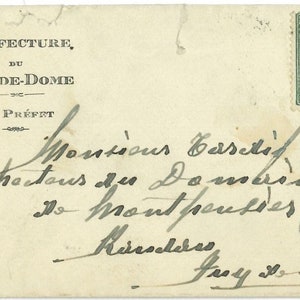 FECTURE
DU
DE-DOME
PRÉFET
Monsieur Tardif
recteur du Domain
de Montpensier
Randan
Puy de